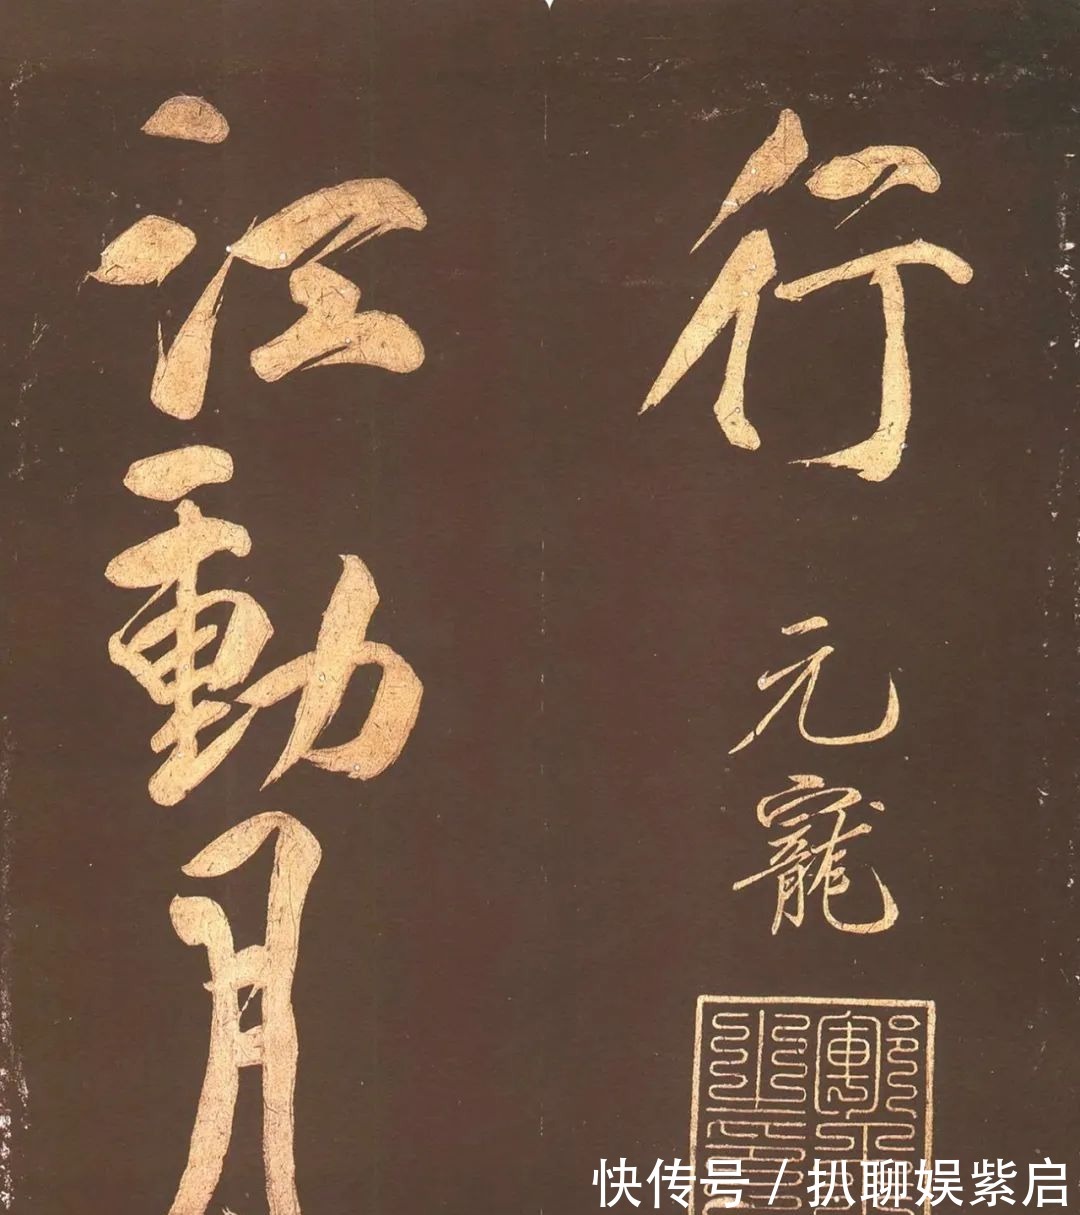 行
元寵
江動月
快传号 / 扒聊娱紫启